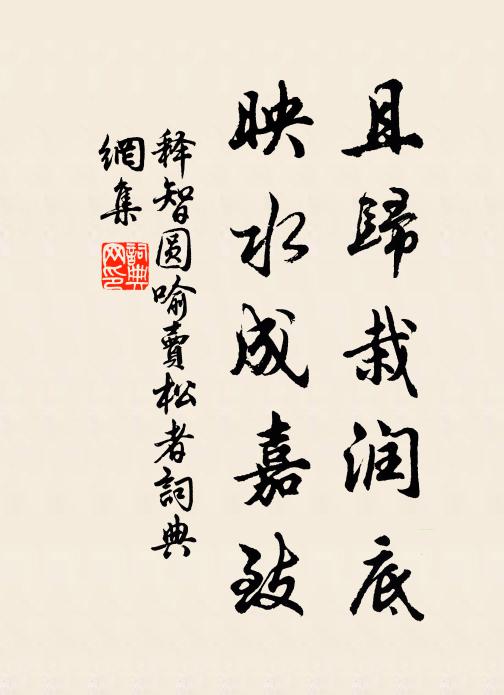 且歸栽润底
映水成嘉致
释智圆喻賣松者詞典
網集
詞典網印